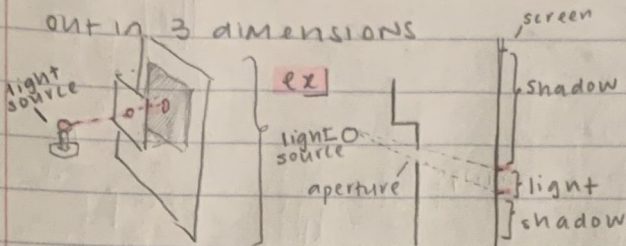 out in 3 dimensions
light
source
ex
light
source
aperture
screen
shadow
light
shadow